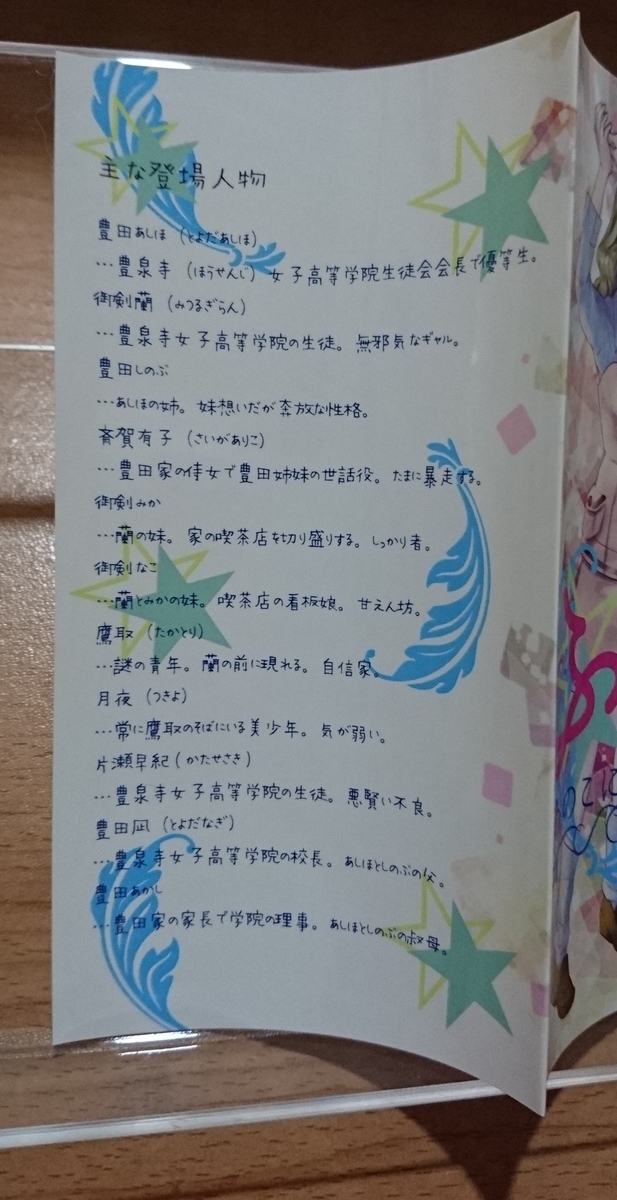 主な登場人物
豊田あしほ（とよだあしほ）
…豊泉寺（ほうせんじ）女子高等学院生徒会会長で優等生。
御剣蘭（みつるぎらん）
…豊泉寺女子高等学院の生徒。無邪気なギャル。
豊田しのぶ
…あしほの姉。妹想いだが奔放な性格。
斉賀有子（さいがありこ）
…豊田家の侍女で豊田姉妹の世話役。たまに暴走する。
御剣みか
…蘭の妹。家の喫茶店を切り盛りする。しっかり者。
御剣なこ
…蘭とみかの妹。喫茶店の看板娘。甘えん坊。
鷹取（たかとり）
…謎の青年。蘭の前に現れる。自信家。
月夜（つきよ）
…常に鷹取のそばにいる美少年。気が弱い。
片瀬早紀（かたせさき）
…豊泉寺女子高等学院の生徒。悪賢い不良。
豊田凪（とよだなぎ）
…豊泉寺女子高等学院の校長。あしほとしのぶの父。
豊田あかし
…豊田家の家長で学院の理事。あしほとしのぶの叔母。